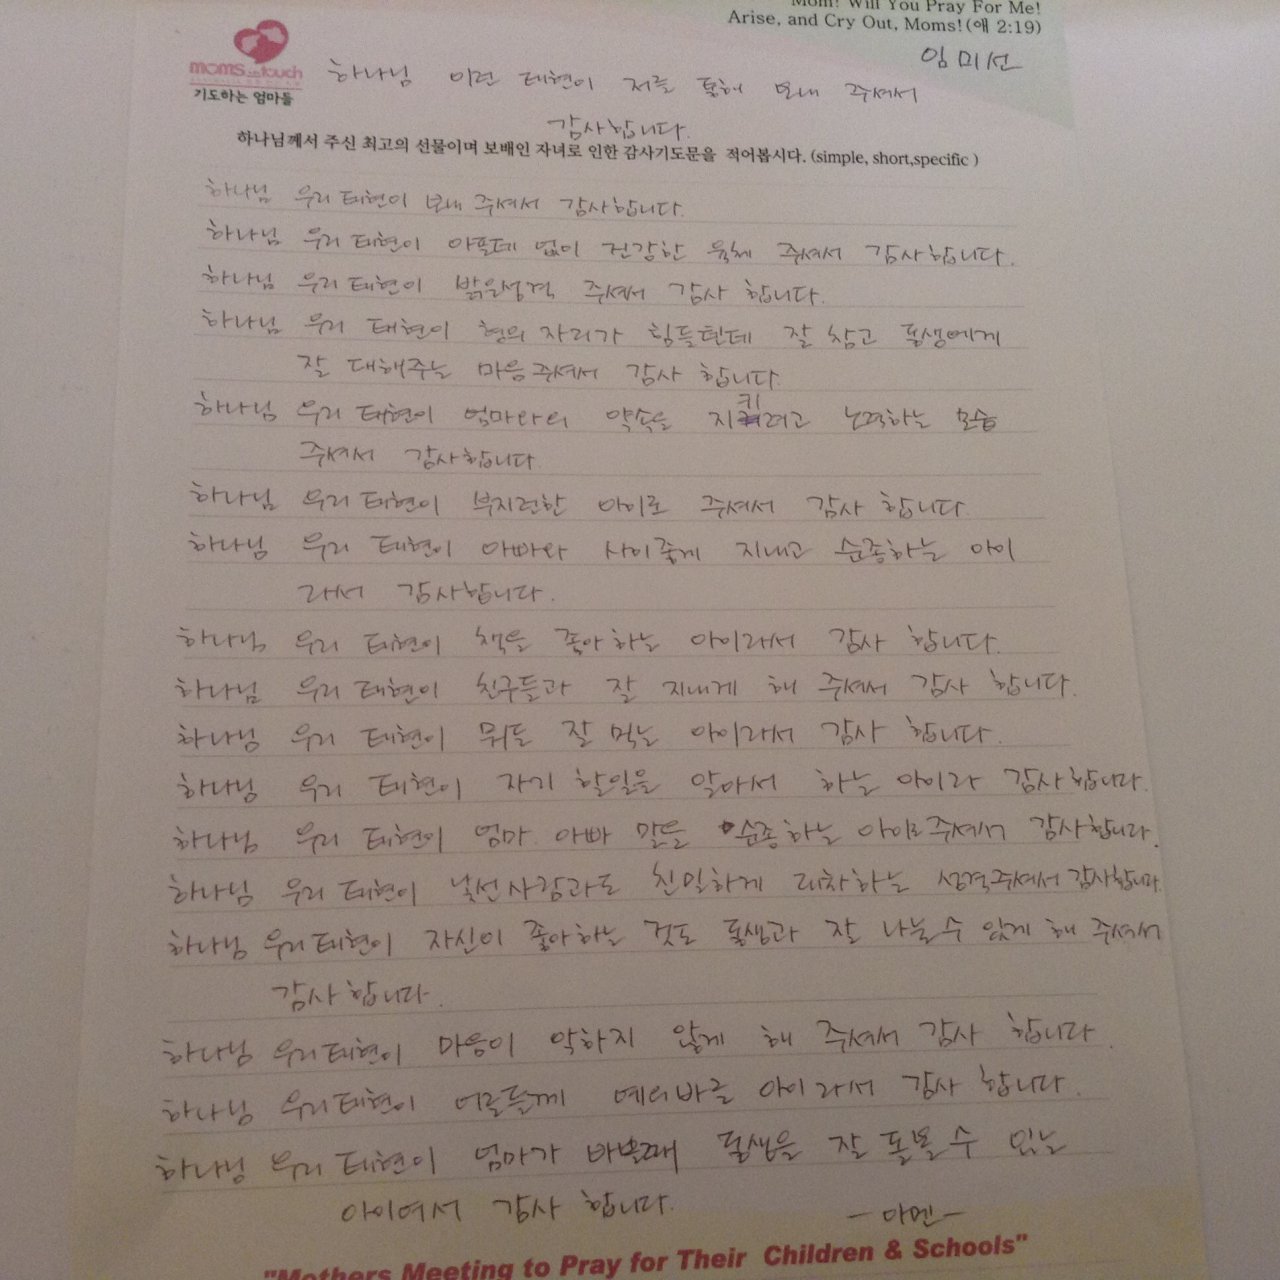 Mom! Will You Pray For Me!
Arise, and Cry Out, Moms!(애 2:19)
임미선
moms in touch
기도하는 엄마들
하나님 이런 태현이 저를 통해 보내 주셔서
감사합니다.
하나님께서 주신 최고의 선물이며 보배인 자녀로 인한 감사기도문을 적어봅시다. (simple, short,specific )
하나님 우리 태현이 보내 주셔서 감사합니다.
하나님 우리 태현이 아픈데 없이 건강한 육체 주셔서 감사합니다.
하나님 우리 태현이 밝은성격 주셔서 감사 합니다.
하나님 우리 태현이 형의 자리가 힘들텐데 잘 참고 동생에게
잘 대해주는 마음주셔서 감사 합니다
하나님 우리 태현이 엄마와의 약속을 지키려고 노력하는 모습
주셔서 감사합니다
하나님 우리 태현이 부지런한 아이로 주셔서 감사 합니다.
하나님 우리 태현이 아빠와 사이좋게 지내고 순종하는 아이
라서 감사합니다.
하나님 우리 태현이 책을 좋아하는 아이라서 감사 합니다.
하나님 우리 태현이 친구들과 잘 지내게 해 주셔서 감사 합니다.
하나님 우리 태현이 뭐든 잘 먹는 아이라서 감사 합니다.
하나님 우리 태현이 자기 할일을 알아서 하는 아이라 감사합니다.
하나님 우리 태현이 엄마. 아빠 말을 순종하는 아이로주셔서 감사합니다.
하나님 우리 태현이 낯선사람과도 친밀하게 대화하는 성격주셔서 감사합니다.
하나님 우리태현이 자신이 좋아하는 것도 동생과 잘 나눌수 있게 해 주셔서
감사합니다.
하나님 우리태현이 마음이 악하지 않게 해 주셔서 감사 합니다.
하나님 우리태현이 어른들께 예의바른 아이라서 감사 합니다.
하나님 우리 태현이 엄마가 바쁠때 동생을 잘 돌볼 수 있는
아이여서 감사 합니다.
-아멘-
"Mothers Meeting to Pray for Their Children & Schools"